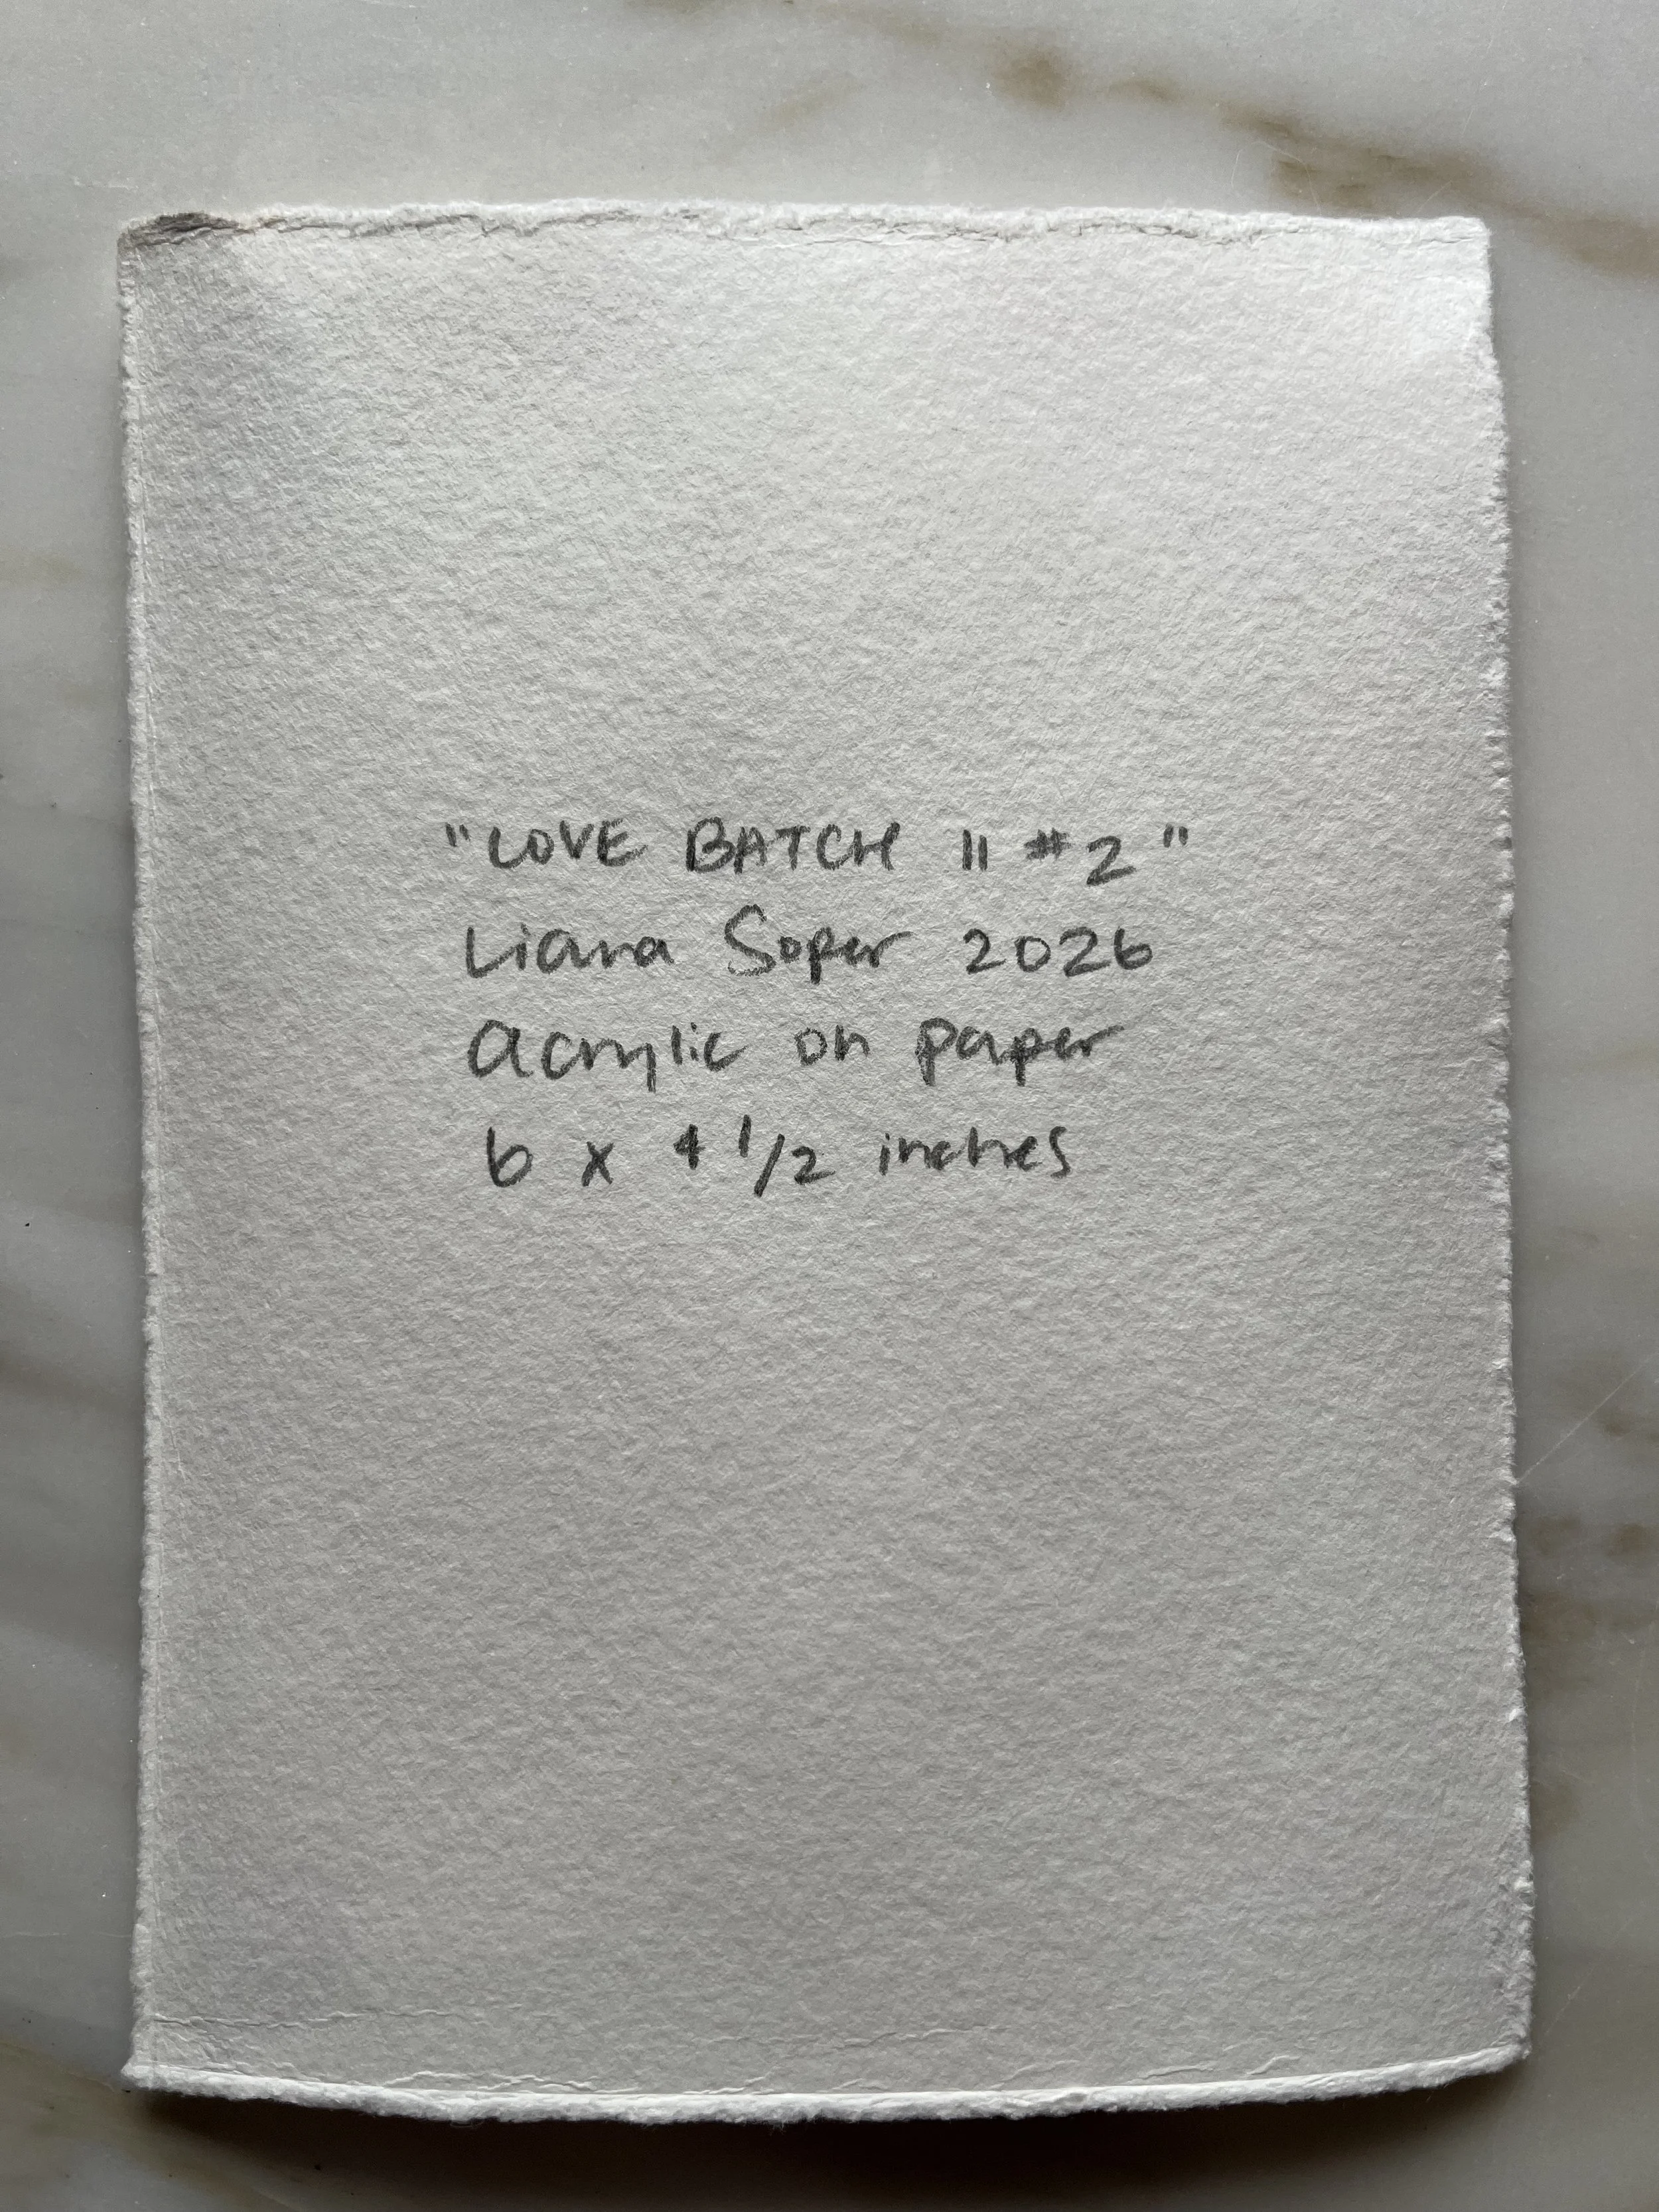 "LOVE BATCH II #2"
Liana Soper 2026
acrylic on paper
6 x 4 1/2 inches